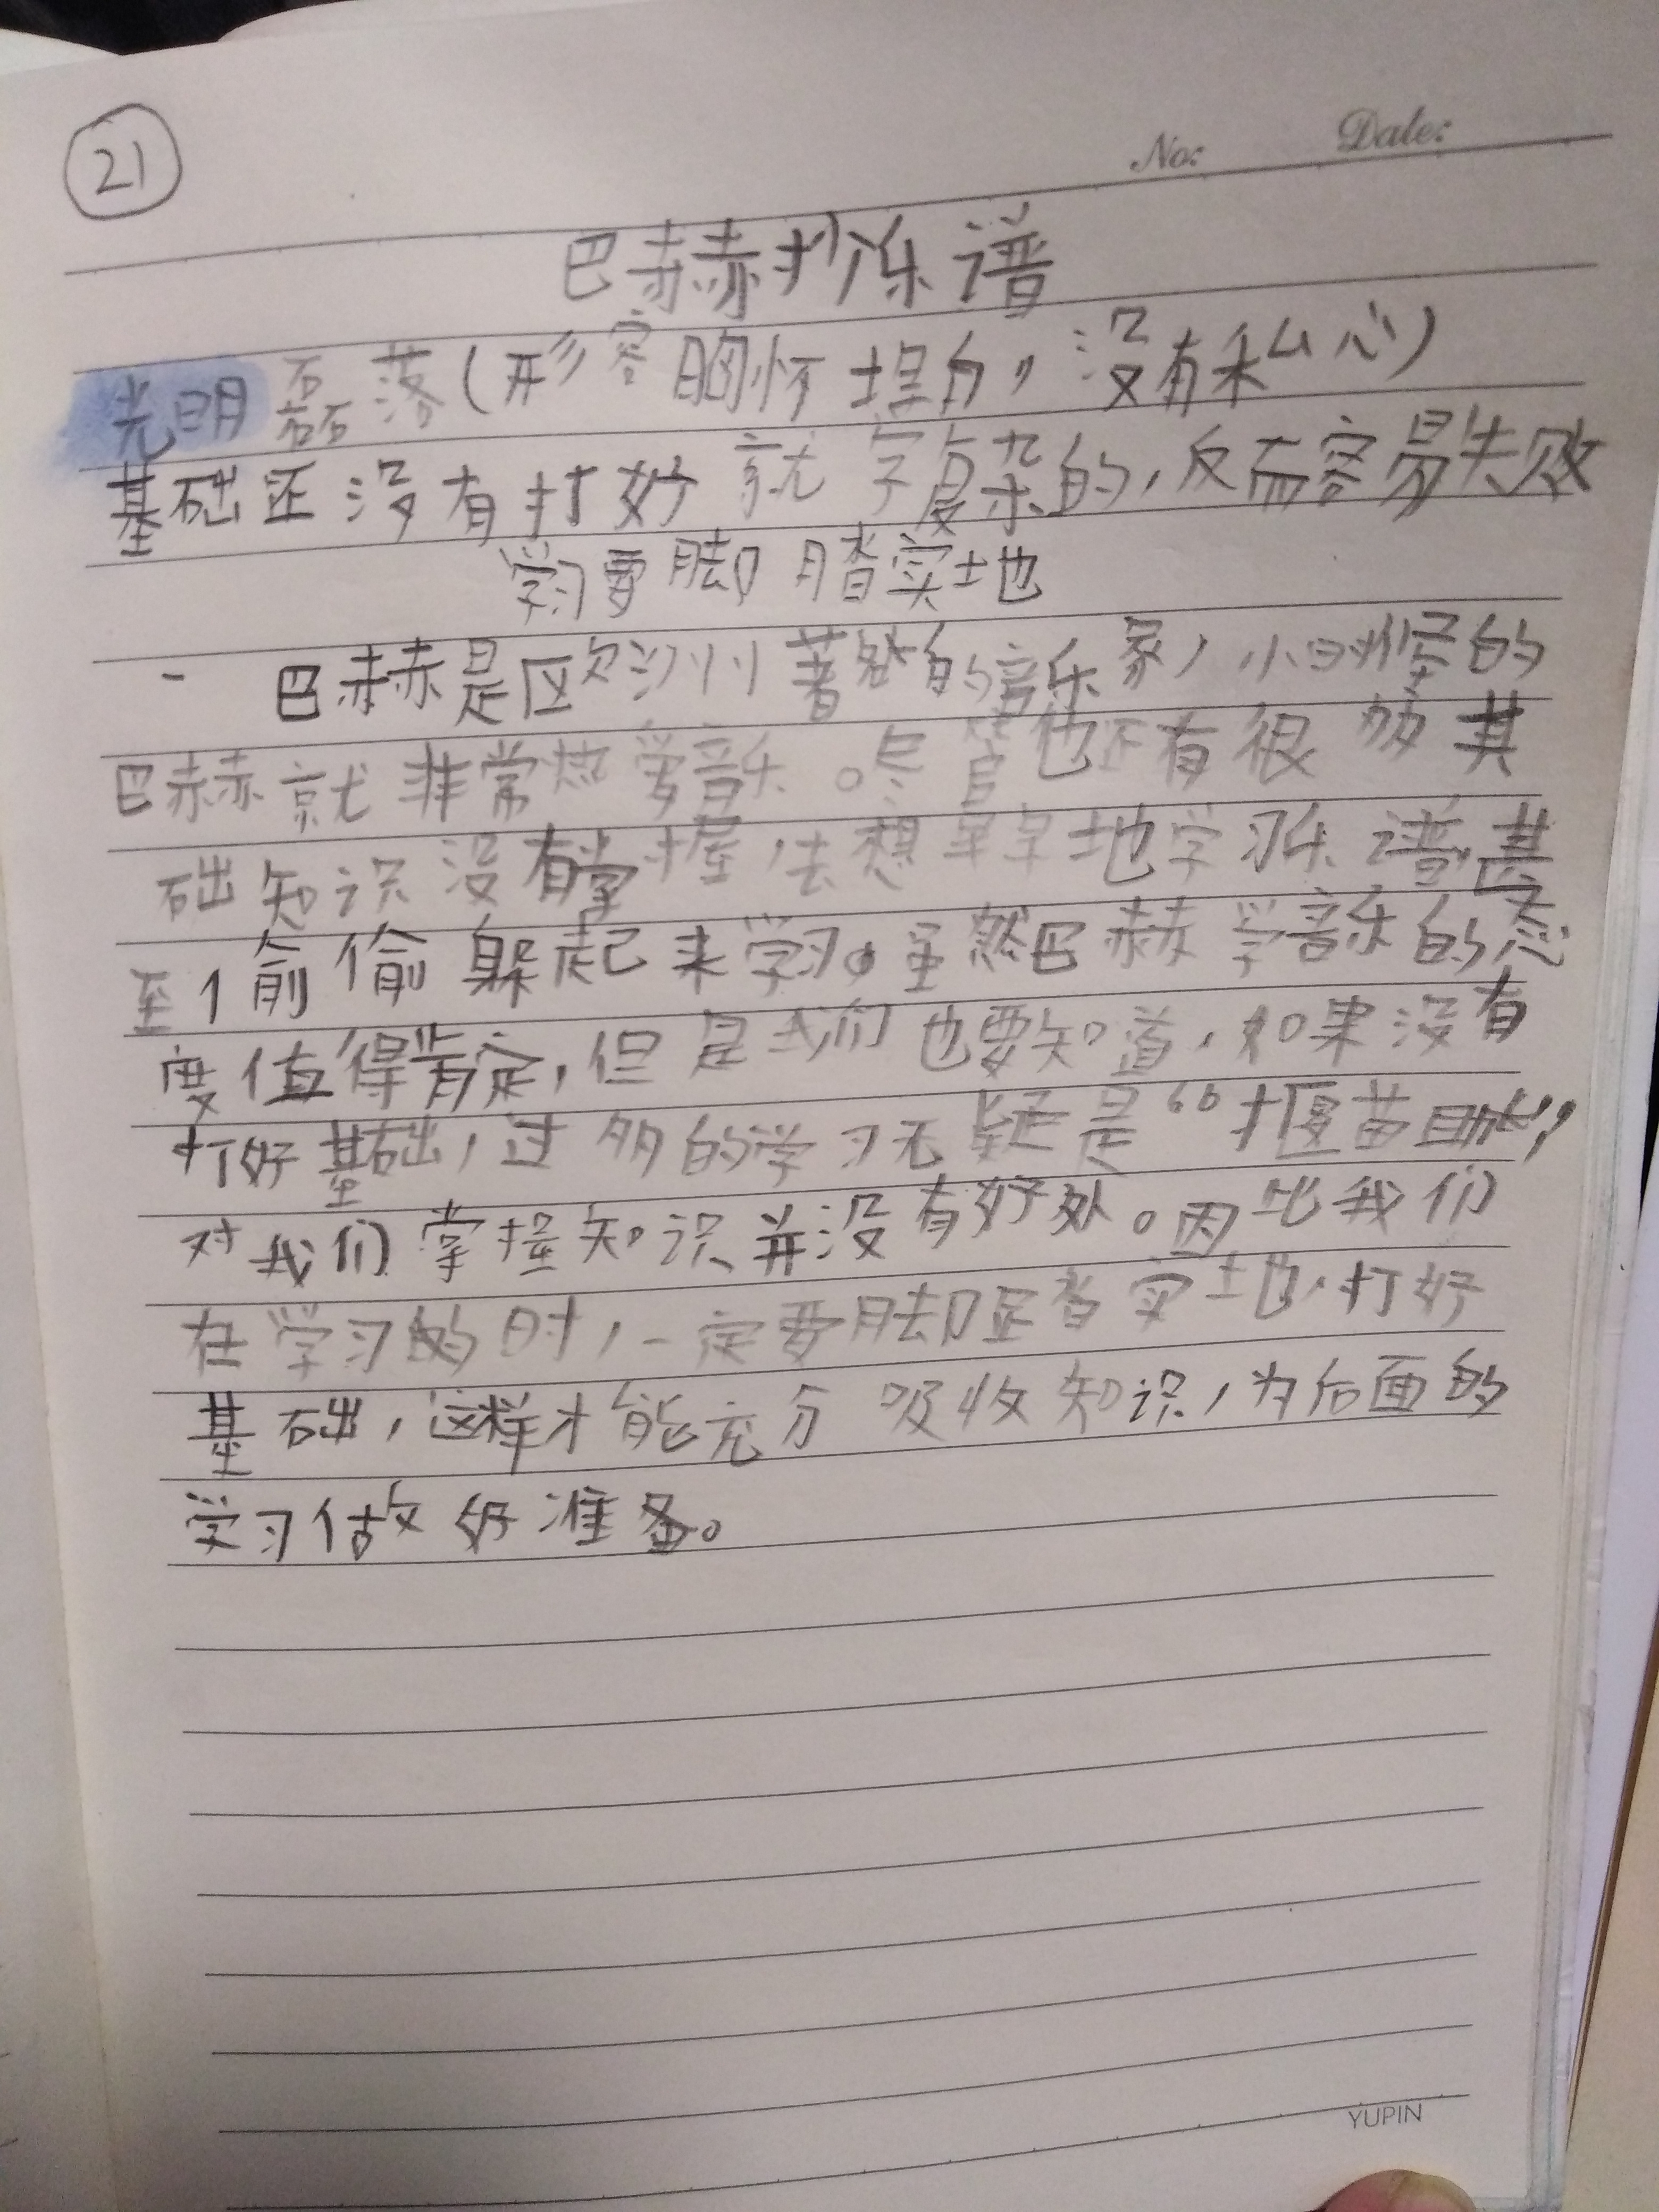 21
No:	Date:
巴赫抄乐谱
光明磊落(形容胸怀坦白,没有私心)
基础还没有打好就学复杂的,反而容易失败
学习要脚踏实地
巴赫是欧洲著名的音乐家,小时候的
巴赫就非常热爱音乐。尽管他还有很多基
础知识没有掌握,去想早早地学习乐谱,甚
至偷偷躲起来学习。虽然巴赫学音乐的态
度值得肯定,但是我们也要知道,如果没有
打好基础,过多的学习无疑是“揠苗助长”,
对我们掌握知识并没有好处。因此我们
在学习的时,一定要脚踏实地,打好
基础,这样才能充分吸收知识,为后面的
学习做好准备。
YUPIN